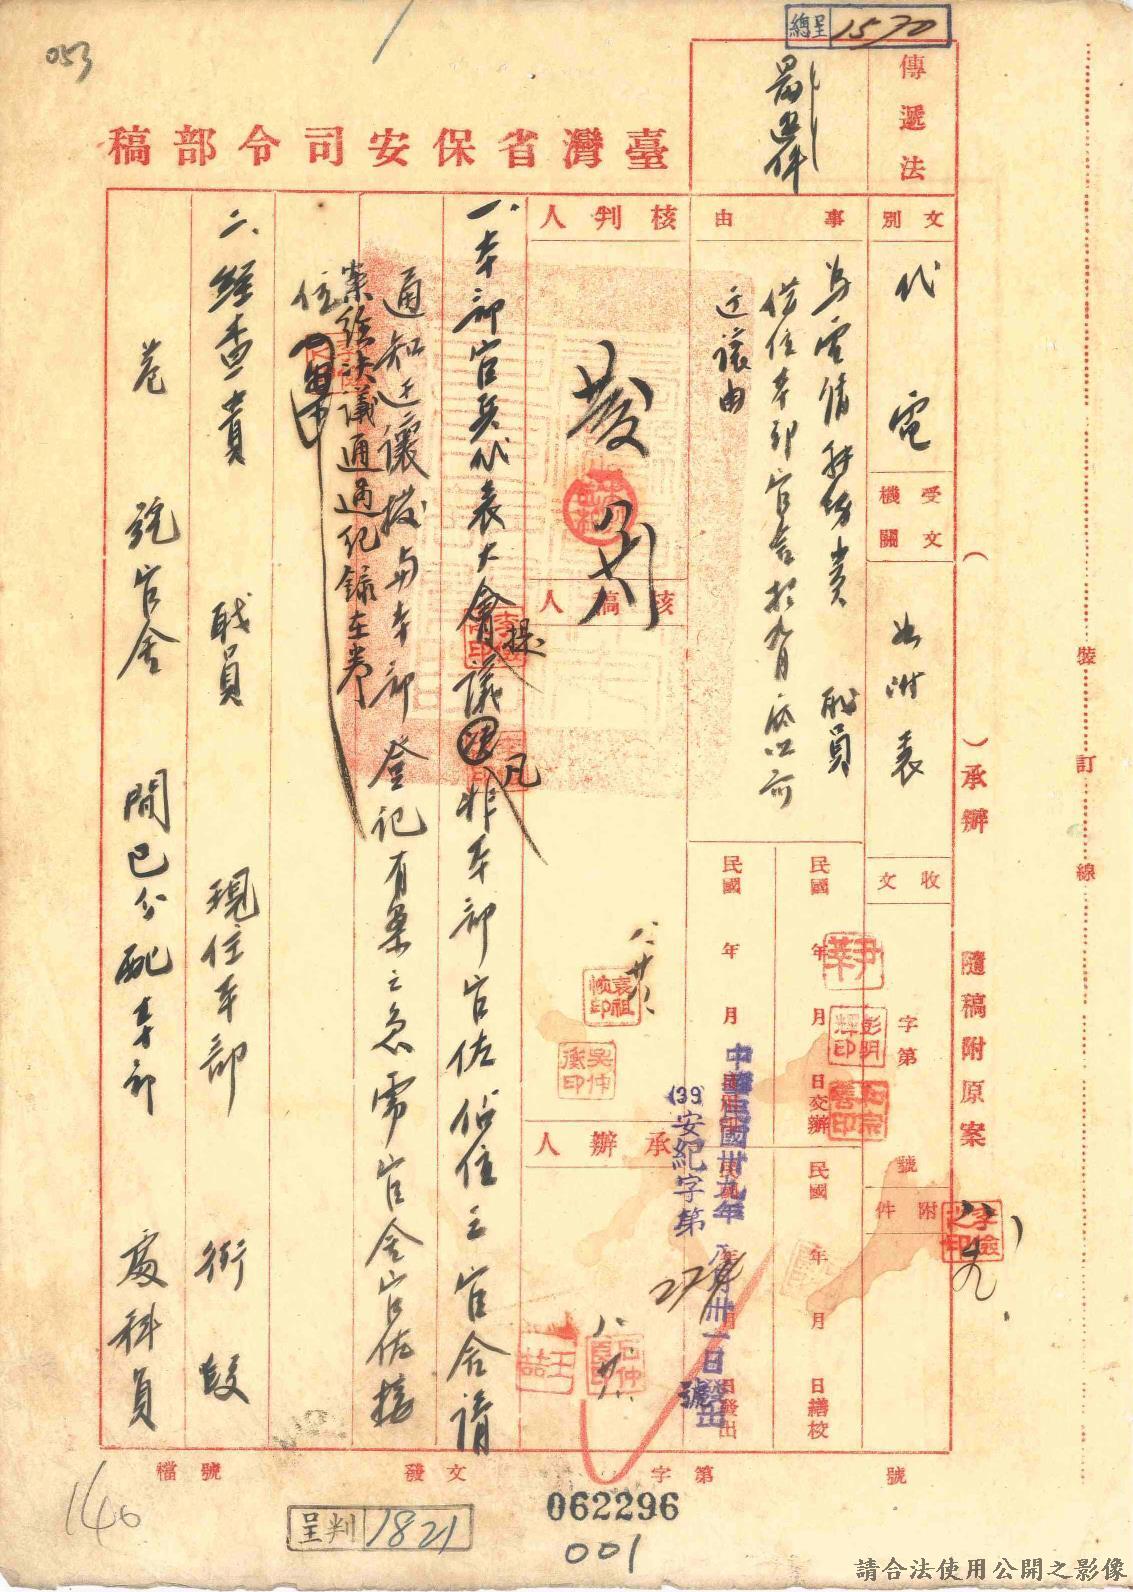 053
總呈 1570
傳遞法
臺灣省保安司令部稿
文別
代電
受文機關
如附表
收文
字第
號
附件
事由
為電請
貴
職員
借住本部官舍於九月底以前
迁讓由
民國 年 月 日交辦
民國 年 月 日繕校
民國 年 月
中華民國卅九年八月卅一日發出
(39)安紀字第
號
核判人
核稿人
承辦人
八、廿八
一、本部官兵代表大會提議凡非本部官佐佔住之官舍請
通知迁讓撥與本部登記有案之急需官舍官佐接
住
案經決議通過紀錄在卷
二、經查貴 職員 現住本部 街 段
巷 號官舍 間已分配本部 處科員
(  )承辦 隨稿附原案
裝訂線
檔號
發文 字第 號
140
呈判 1821
062296
001
請合法使用公開之影像